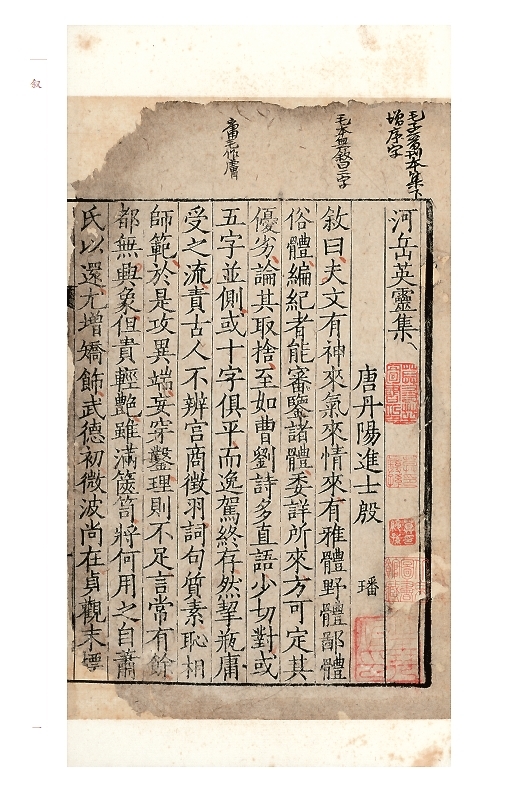 毛子晉刊本集下
增序字
毛本無敘曰二字
庸毛作膚
河岳英靈集
唐丹陽進士殷 璠
敘曰夫文有神來氣來情來有雅體野體鄙體
俗體編紀者能審鑒諸體委詳所來方可定其
優劣論其取捨至如曹劉詩多直語少切對或
五字並側或十字俱平而逸駕終存然挈瓶庸
受之流責古人不辨宮商徵羽詞句質素恥相
師範於是攻異端妄穿鑿理則不足言常有餘
都無興象但貴輕艷雖滿篋笥將何用之自蕭
氏以還尤增矯飾武德初微波尚在貞觀末標
叙
一